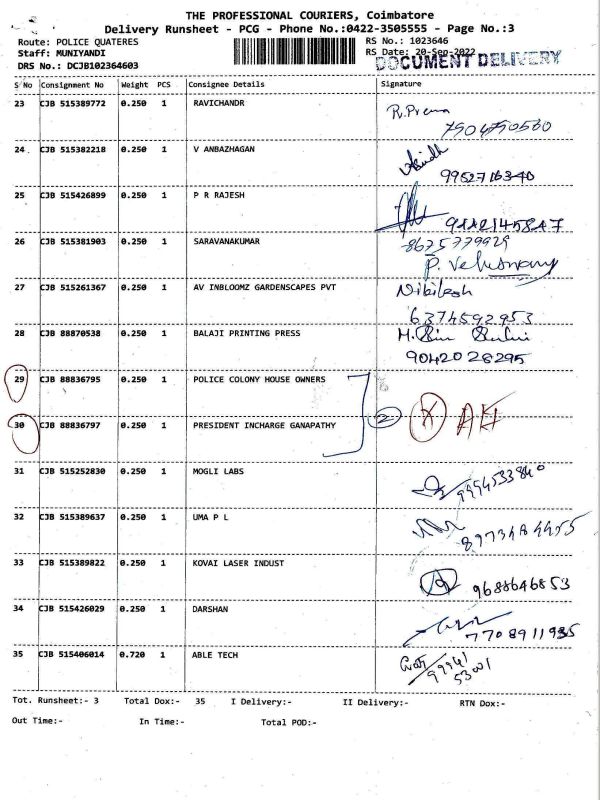 THE PROFESSIONAL COURIERS, Coimbatore
Delivery Runsheet - PCG - Phone No.:0422-3505555 - Page No.:3
Route: POLICE QUATERES RS No.: 1023646
Staff: MUNIYANDI RS Date: 20-Sep-2022
DOCUMENT DELIVERY
DRS No.: DCJB102364603
S No Consignment No Weight PCS Consignee Details Signature
23 CJB 515389772 0.250 1 RAVICHANDR R.Prema
7904750560
24 CJB 515382218 0.250 1 V ANBAZHAGAN
9952716340
25 CJB 515426899 0.250 1 P R RAJESH
26 CJB 515381903 0.250 1 SARAVANAKUMAR
27 CJB 515261367 0.250 1 AV INBLOOMZ GARDENSCAPES PVT
6374592953
28 CJB 88870538 0.250 1 BALAJI PRINTING PRESS
9042028295
29 CJB 88836795 0.250 1 POLICE COLONY HOUSE OWNERS
2
30 CJB 88836797 0.250 1 PRESIDENT INCHARGE GANAPATHY
31 CJB 515252830 0.250 1 MOGLI LABS
9994533840
32 CJB 515389637 0.250 1 UMA P L
33 CJB 515389822 0.250 1 KOVAI LASER INDUST
9688646853
34 CJB 515426029 0.250 1 DARSHAN
7708911935
35 CJB 515406014 0.720 1 ABLE TECH
99941
53001
Tot. Runsheet:- 3 Total Dox:- 35 I Delivery:- II Delivery:- RTN Dox:-
Out Time:- In Time:- Total POD:-